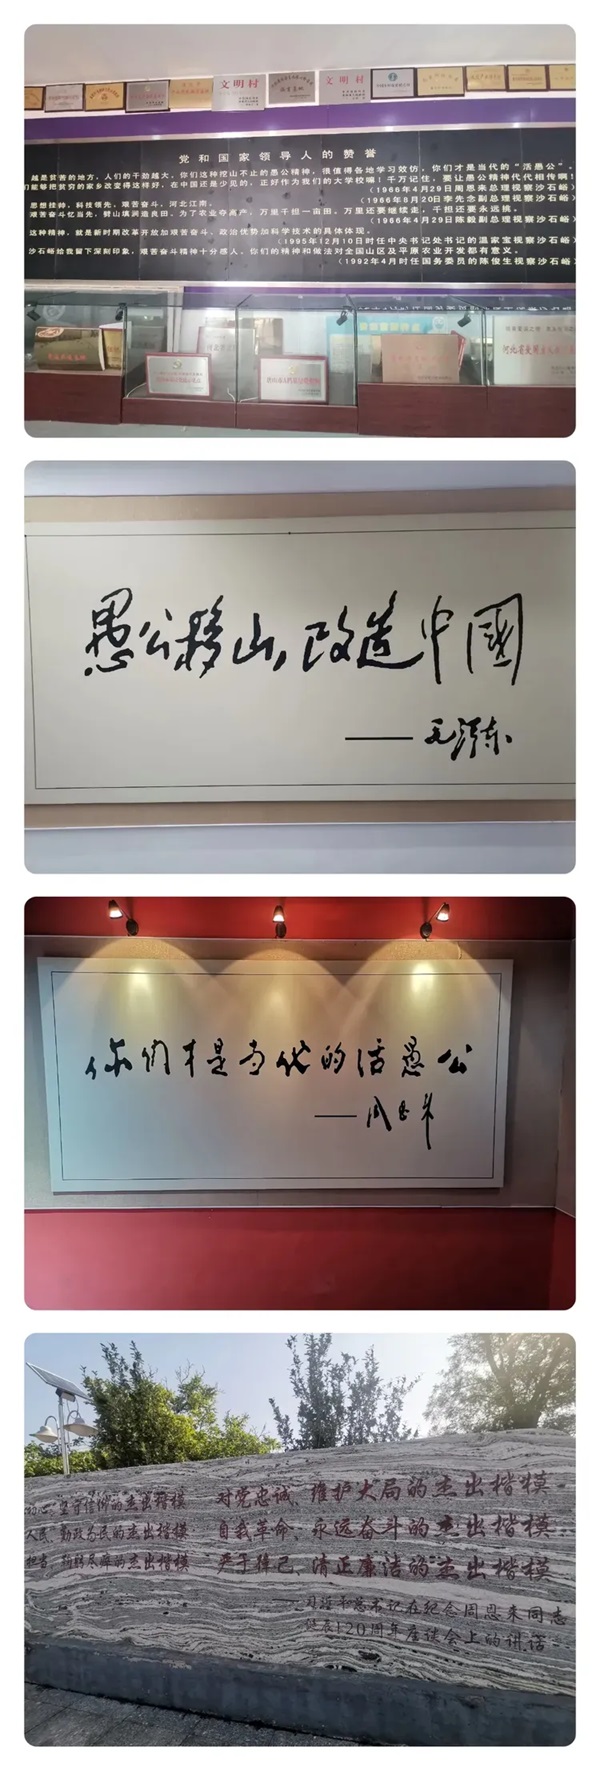 文明村
文明村
党和国家领导人的赞誉
越是贫苦的地方，人们的干劲越大，你们这种挖山不止的愚公精神，很值得各地学习效仿，你们才是当代的“活愚公”。
们能够把贫穷的家乡改变得这样好，在中国还是少见的，正好作为我们的大学校嘛！千万记住，要让愚公精神代代相传啊！
（1966年4月29日周恩来总理视察沙石峪）
思想挂帅，科技领先，艰苦奋斗，河北江南。
（1966年8月20日李先念副总理视察沙石峪）
艰苦奋斗亿当先，劈山填涧造良田。为了农业夺高产，万里千担一亩田。万里还要继续走，千担还要永远挑。
（1966年4月29日陈毅副总理视察沙石峪）
这种精神，就是新时期改革开放加艰苦奋斗，政治优势加科学技术的具体体现。
（1995年12月10日时任中央书记处书记的温家宝视察沙石峪）
沙石峪给我留下深刻印象，艰苦奋斗精神十分感人，你们的精神和做法对全国山区及平原农业开发都有意义。
（1992年4月时任国务委员的陈俊生视察沙石峪）
愚公移山，改造中國
——毛泽东
你们才是当代的活愚公
——周恩来
初心、坚守信仰的杰出楷模 对党忠诚、维护大局的杰出楷模
人民、勤政为民的杰出楷模 自我革命、永远奋斗的杰出楷模
担当、鞠躬尽瘁的杰出楷模 严于律己、清正廉洁的杰出楷模
——习近平总书记在纪念周恩来同志
诞辰120周年座谈会上的讲话